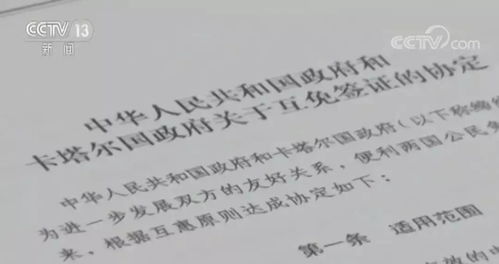 CCTV 13
新闻
CCTV.com
中华人民共和国政府和
卡塔尔国政府关于互免签证的协定
中华人民共和国政府和卡塔尔国政府(以下称缔约
为进一步发展双方的友好关系,便利两国公民
来,根据互惠原则达成协定如下:
第一条 适用范围